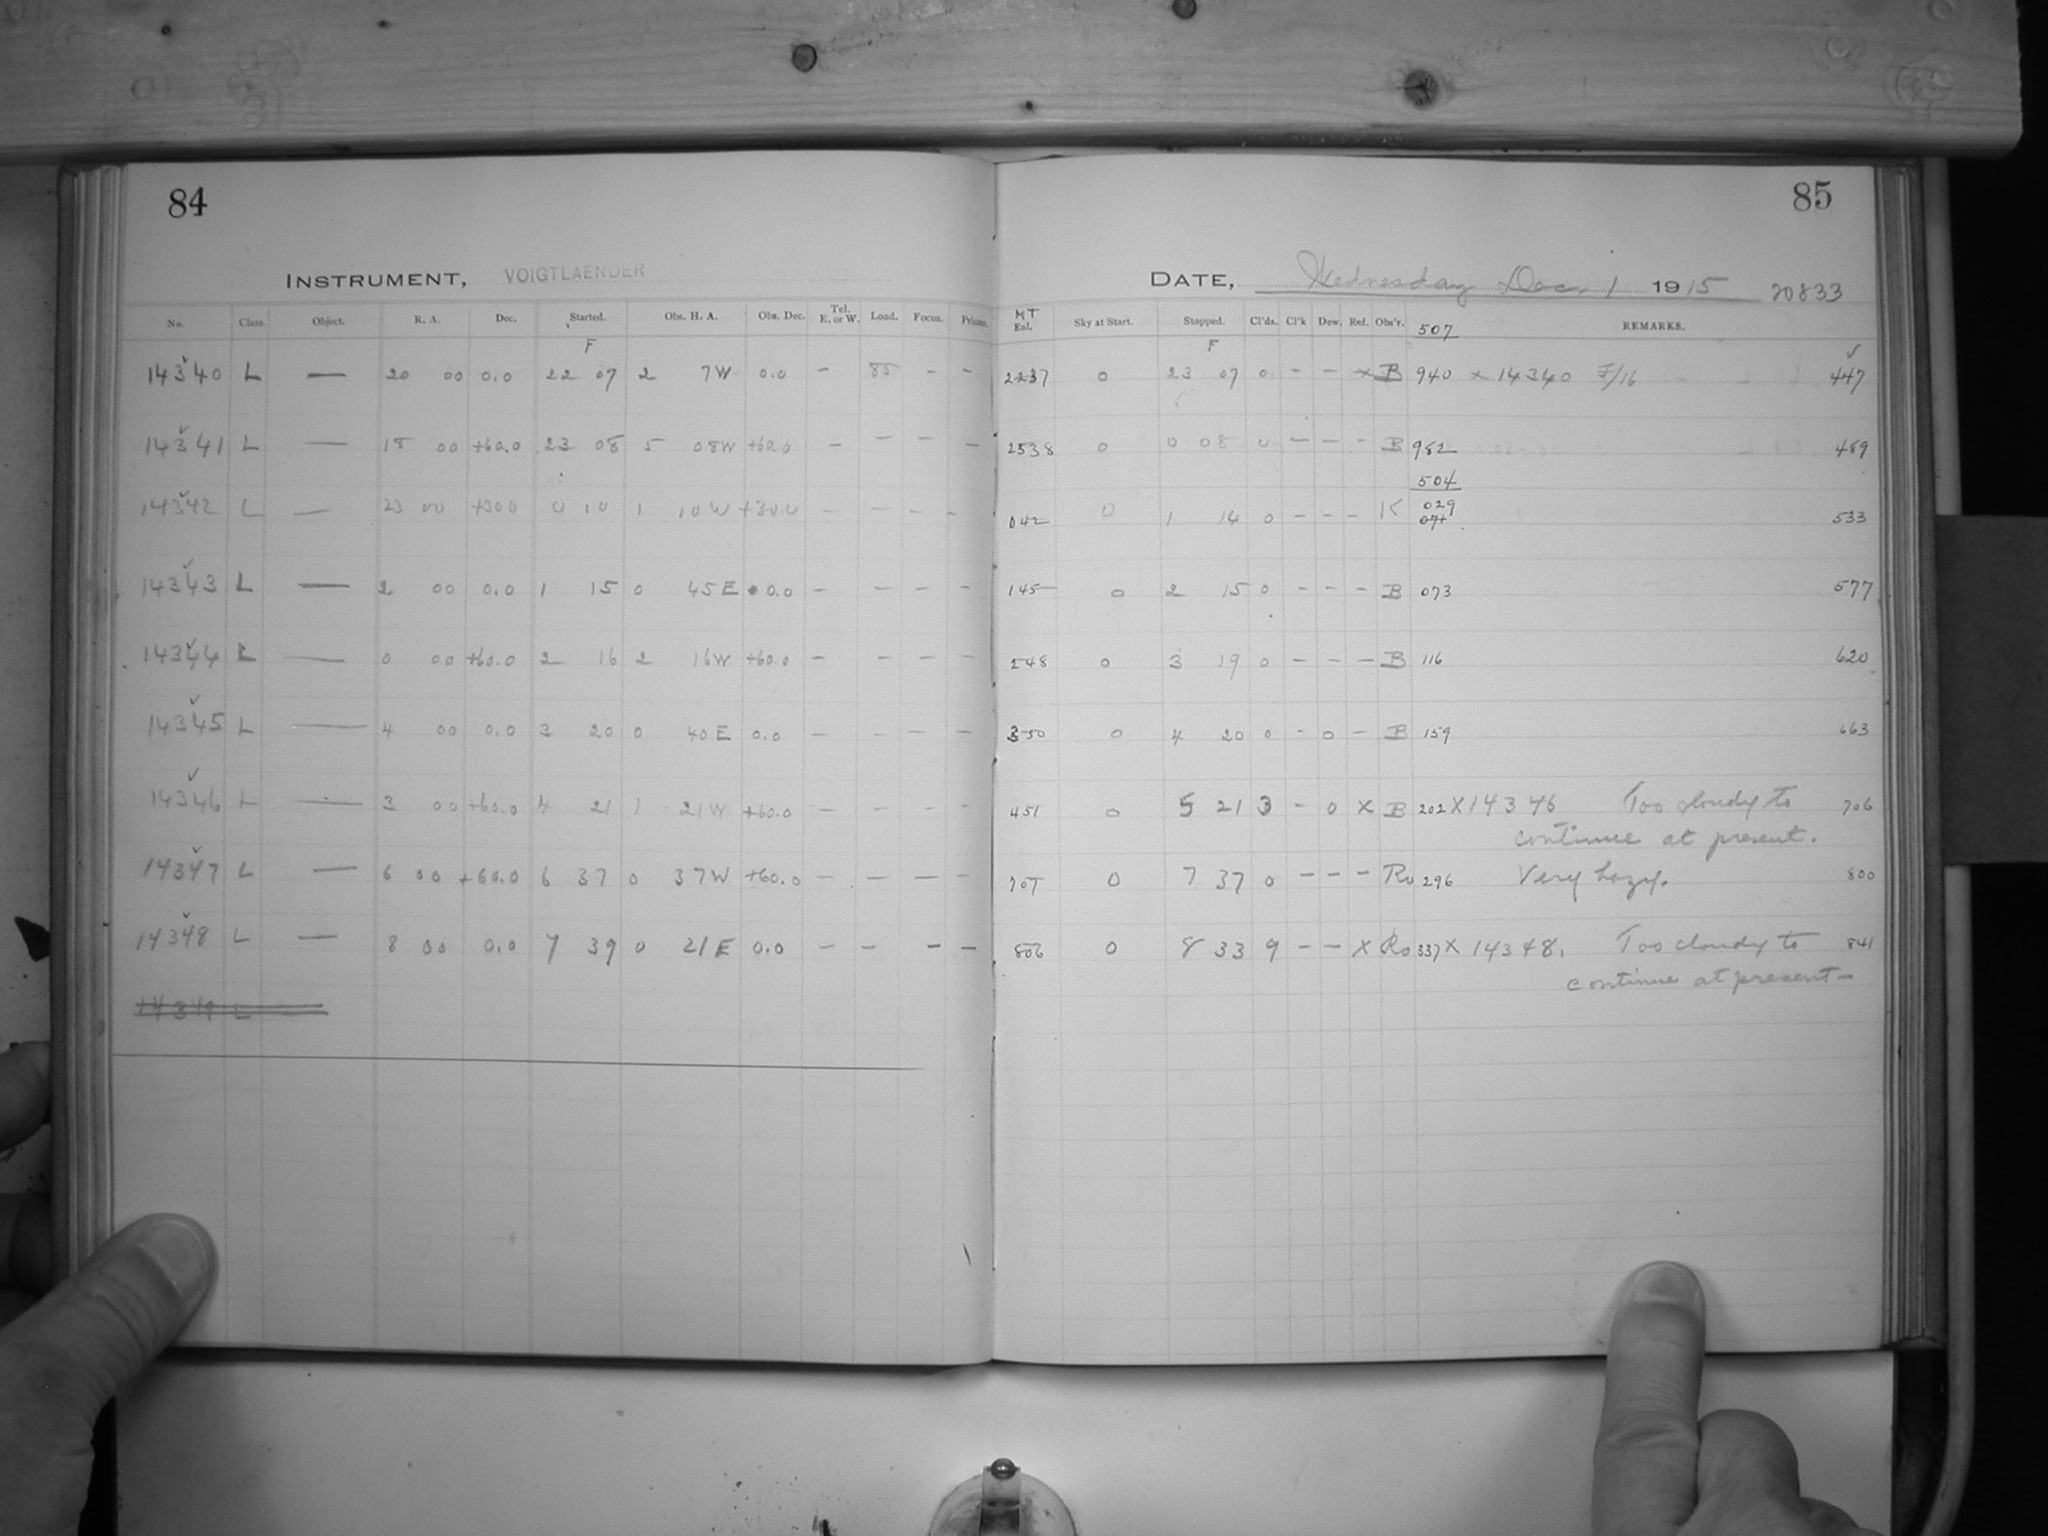 84
INSTRUMENT, VOIGTLAENDER
No. Class. Object. R. A. Dec. Started. Obs. H. A. Obs. Dec. Tel. E. or W. Load. Focus. Prisms.
F
14340 L — 20 00 0.0 22 07 2 7W 0.0 — 85 — —
14341 L — 18 00 +60.0 23 08 5 08W +60.0 — — — —
14342 L — 23 00 +30.0 0 10 1 10W +30.0 — — — —
14343 L — 2 00 0.0 1 15 0 45E 0.0 — — — —
14344 L — 0 00 +60.0 2 16 2 16W +60.0 — — — —
14345 L — 4 00 0.0 3 20 0 40E 0.0 — — — —
14346 L — 3 00 +60.0 4 21 1 21W +60.0 — — — —
14347 L — 6 00 +60.0 6 37 0 37W +60.0 — — — —
14348 L — 8 00 0.0 7 39 0 21E 0.0 — — — —
14349 L —
85
DATE, Wednesday Dec. 1 1915 20833
MT
Enl. Sky at Start. Stopped. Cl'ds. Cl'k Dew. Ref. Obs'r. 507 REMARKS.
F
2237 0 23 07 0 — — x B 940 x 14340 F/16 447
2338 0 0 08 0 — — — B 982 489
504
042 0 1 14 0 — — — K 029 533
145 0 2 15 0 — — — B 073 577
248 0 3 19 0 — — — B 116 620
350 0 4 20 0 — 0 — B 159 663
451 0 5 21 3 — 0 x B 202 x 14346 Too cloudy to 706
continue at present.
707 0 7 37 0 — — — Ro 296 Very hazy. 800
806 0 8 33 9 — — x Ro 337 x 14348. Too cloudy to 841
continue at present—